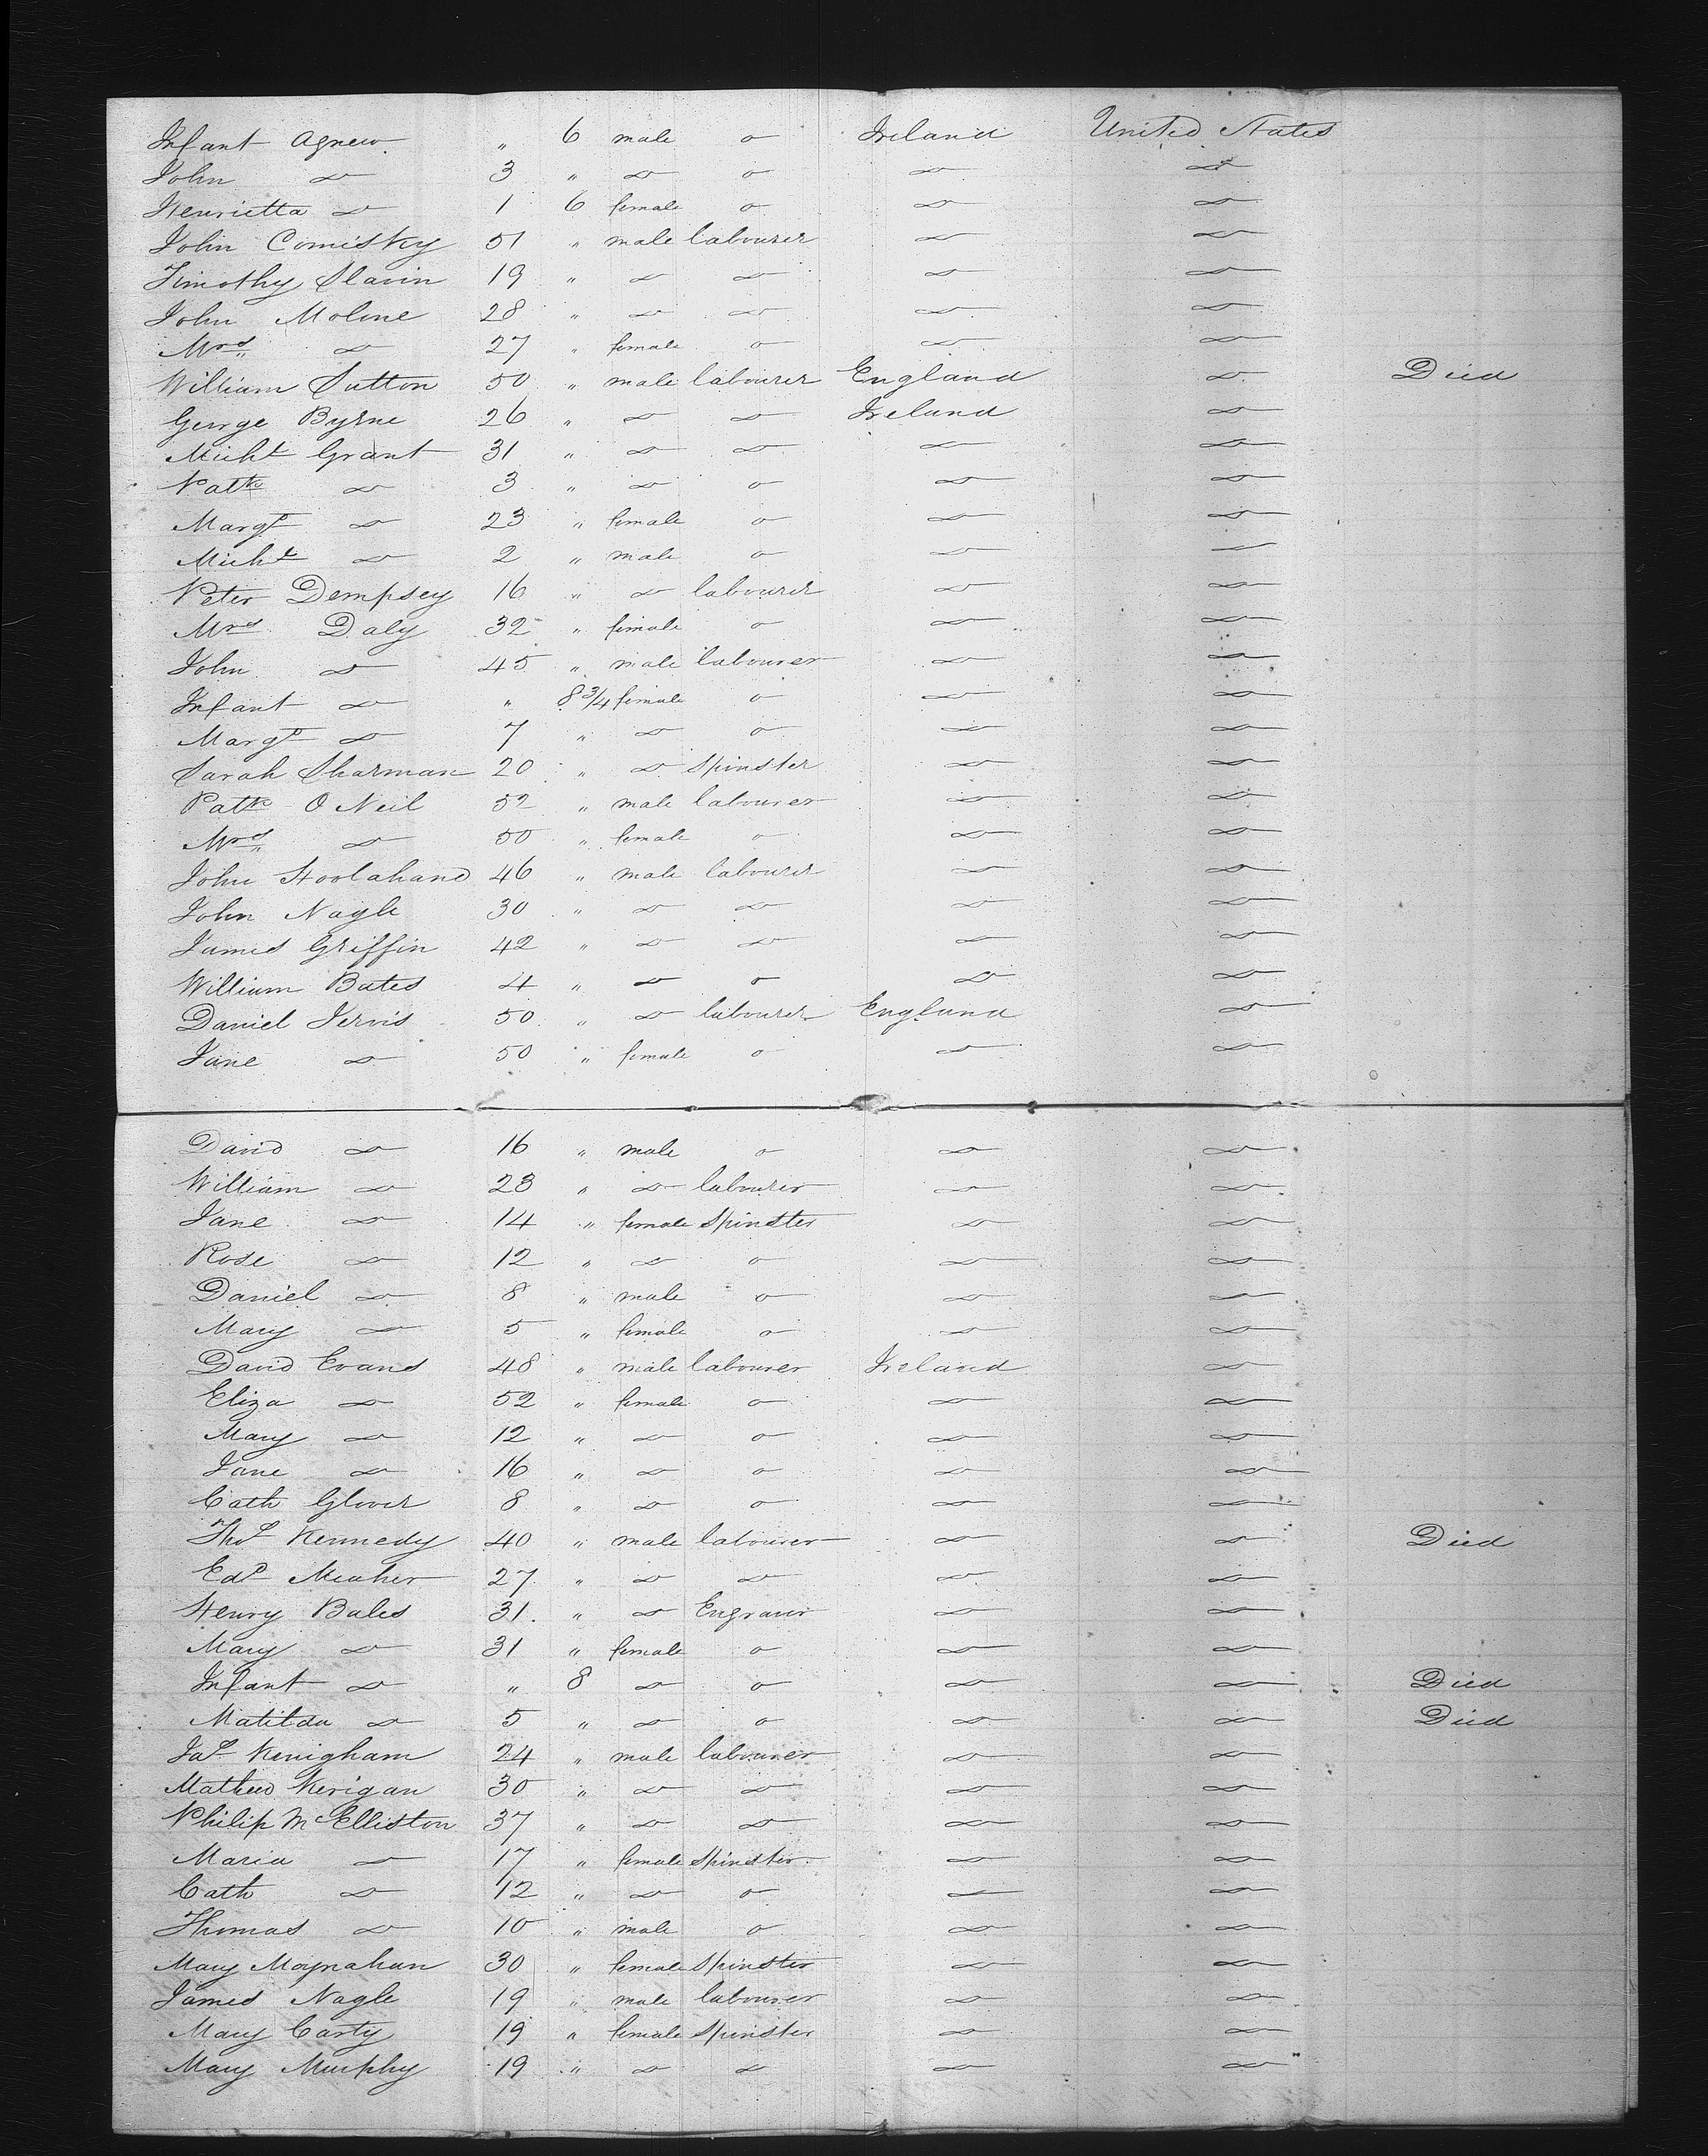 Infant Agnew " 6 male o Ireland United States
John do 3 " do o do do
Henrietta do 1 6 female o do do
John Comisky 51 " male labourer do do
Timothy Slavin 19 " do do do do
John Molone 28 " do do do do
Mrs do 27 " female o do do
William Sutton 50 " male labourer England do Died
George Byrne 26 " do do Ireland do
Michl Grant 31 " do do do do
Patk do 3 " do o do do
Margt do 23 " female o do do
Michl do 2 " male o do do
Peter Dempsey 16 " do labourer do do
Mrs Daly 32 " female o do do
John do 45 " male labourer do do
Infant do " 8 3/4 female o do do
Margt do 7 " do o do do
Sarah Sharman 20 " do Spinster do do
Patk O Neil 52 " male labourer do do
Mrs do 50 " female o do do
John Hoolahand 46 " male labourer do do
John Nagle 30 " do do do do
James Griffin 42 " do do do do
William Bates 4 " do o do do
Daniel Jervis 50 " do labourer England do
Jane do 50 " female o do do
David do 16 " male o do do
William do 23 " do labourer do do
Jane do 14 " female Spinster do do
Rose do 12 " do o do do
Daniel do 8 " male o do do
Mary do 5 " female o do do
David Evans 48 " male labourer Ireland do
Eliza do 52 " female o do do
Mary do 12 " do o do do
Jane do 16 " do o do do
Cath Glover 8 " do o do do
Thos Kennedy 40 " male labourer do do Died
Edd Meaher 27 " do do do do
Henry Bales 31 " do Engraver do do
Mary do 31 " female o do do
Infant do " 8 do o do do Died
Matilda do 5 " do o do do Died
Jas Kenigham 24 " male labourer do do
Mathew Kerigan 30 " do do do do
Philip McElliston 37 " do do do do
Maria do 17 " female Spinster do do
Cath do 12 " do o do do
Thomas do 10 " male o do do
Mary Moynahan 30 " female Spinster do do
James Nagle 19 " male labourer do do
Mary Carty 19 " female Spinster do do
Mary Murphy 19 " do do do do